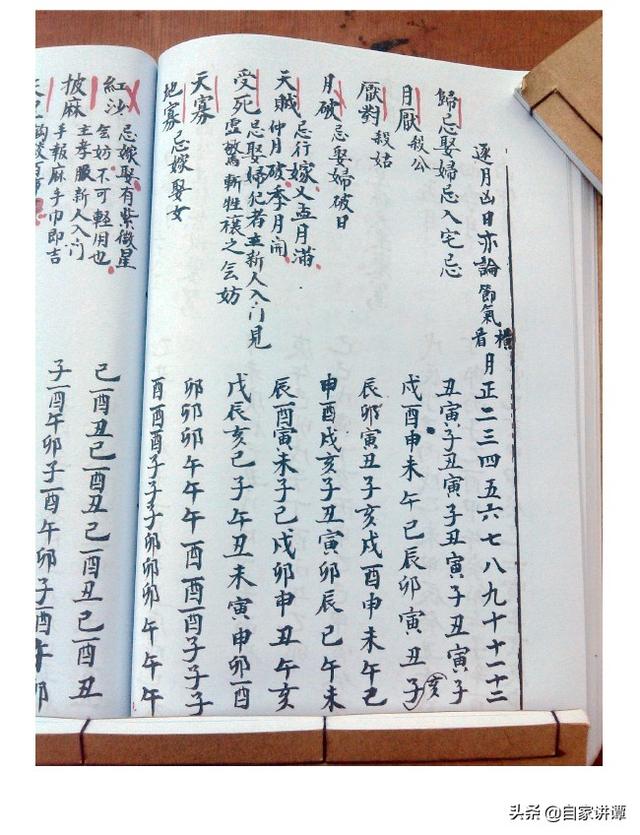 逐月凶日亦論節氣橫看 月正二三四五六七八九十十一十二
歸忌娶婦忌入宅忌 丑寅子丑寅子丑寅子丑寅子
月厭 殺公 戌酉申未午巳辰卯寅丑子亥
厭對 殺姑 辰卯寅丑子亥戌酉申未午巳
月破 忌娶婦破日 申酉戌亥子丑寅卯辰巳午未
天賊 忌行嫁又孟月滿
仲月破季月開 辰酉寅未子巳戌卯申丑午亥
受死 忌娶婦犯者主新人入门見
虛驚斬牲禳之会妨 戌辰亥巳子午丑未寅申卯酉
天寡 忌嫁娶女 卯卯卯午午午酉酉酉子子子
地寡 酉酉酉子子子卯卯卯午午午
紅沙 忌嫁娶有紫微星
会妨不可輕用也 巳酉丑巳酉丑巳酉丑巳酉丑
披麻 主孝服新人入门
手報麻手巾即吉 子酉午卯子酉午卯子酉午卯
头条 @自家讲谭